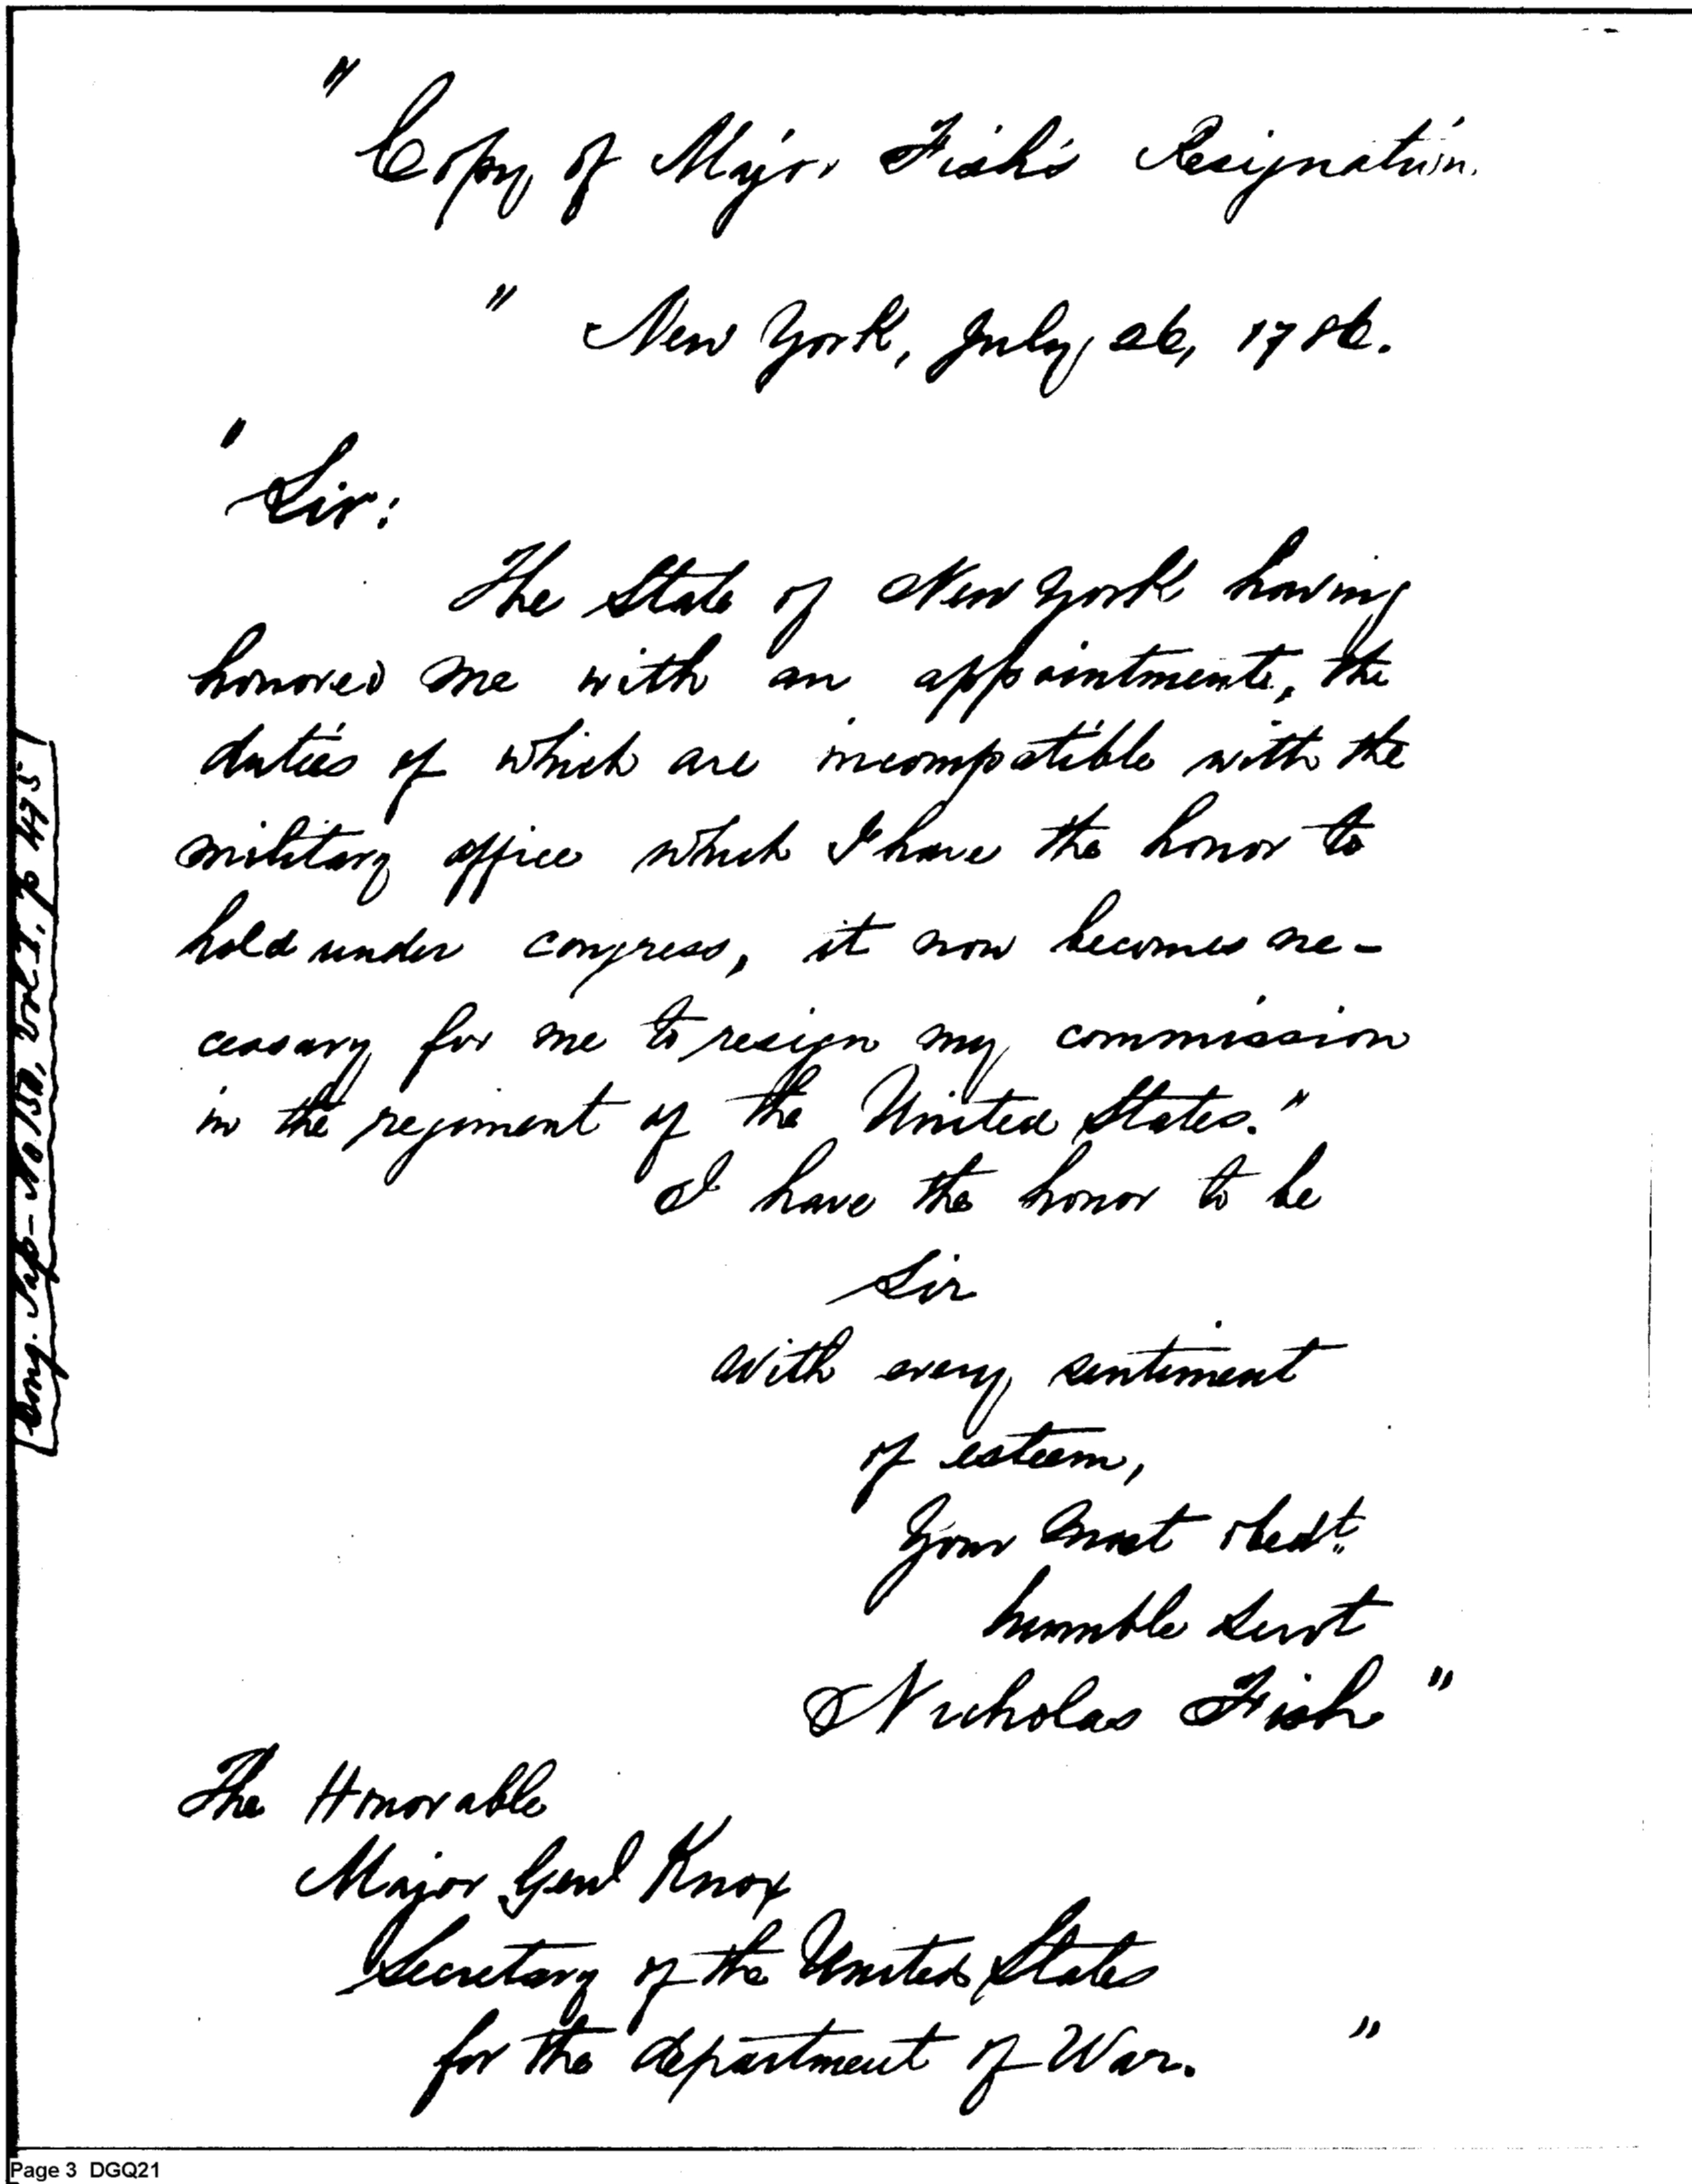 "
Copy of Major Fish's Resignation.
" New York, July 26, 1786.
" Sir:
The State of New York having
honored me with an appointment, the
duties of which are incompatible with the
military office which I have the honor to
hold under congress, it now becomes ne-
cessary for me to resign my commission
in the regiment of the United States."
I have the honor to be
Sir
with every sentiment
of esteem,
Your most obedt
humble servt
Nicholas Fish "
The Honorable
Major Genl Knox
Secretary of the United States
for the department of War. "
Cong. Pap- No 150, Vol I, p 475
Page 3 DGQ21